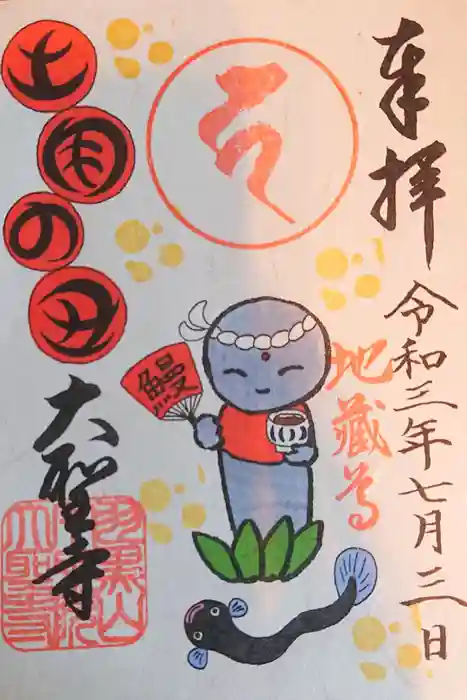 奉拝
令和三年七月三日
地蔵尊
鰻
土用の丑
大聖寺